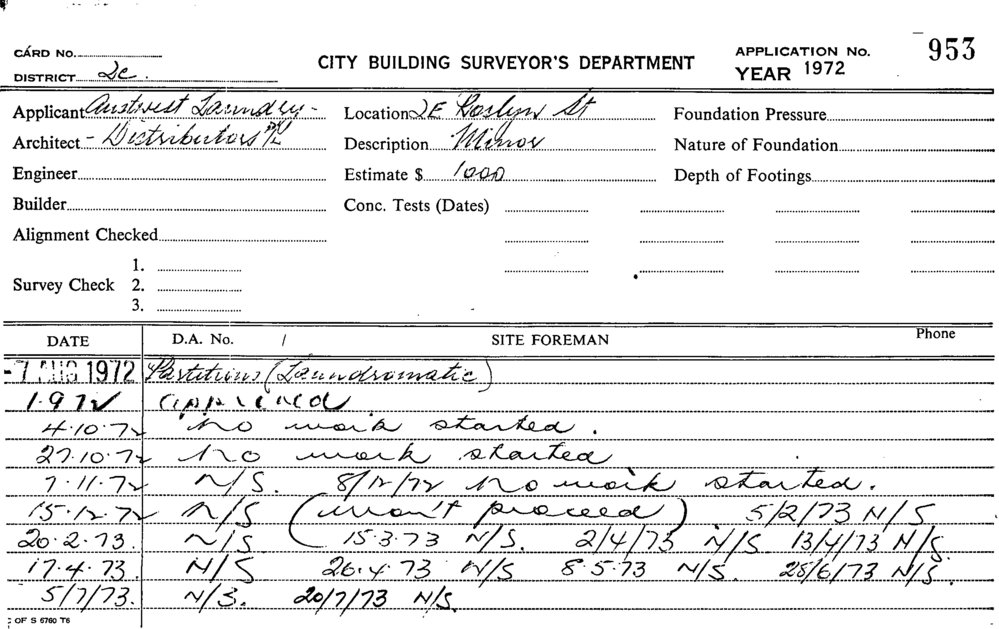 CARD No.
DISTRICT 2c.
CITY BUILDING SURVEYOR'S DEPARTMENT
APPLICATION No. 953
YEAR 1972
Applicant Austwest Laundry -
Architect - Distributors P/L
Engineer
Builder
Alignment Checked
Survey Check 1.
2.
3.
Location 2E Roslyn St
Description Minor
Estimate $ 1000
Conc. Tests (Dates)
Foundation Pressure
Nature of Foundation
Depth of Footings
DATE D.A. No. / SITE FOREMAN Phone
-7 AUG 1972 Partitions (Laundromatic)
1.9.72 approved
4.10.72 No work started.
27.10.72 No work started
7.11.72 N/S. 8/12/72 No work started.
15.12.72 N/S (won't proceed) 5/2/73 N/S
20.2.73. N/S 15.3.73 N/S. 2/4/73 N/S 13/4/73 N/S.
17.4.73. N/S 26.4.73 N/S 8.5.73 N/S. 28/6/73 N/S.
5/7/73. N/S. 20/7/73 N/S.
OF S 6760 T6